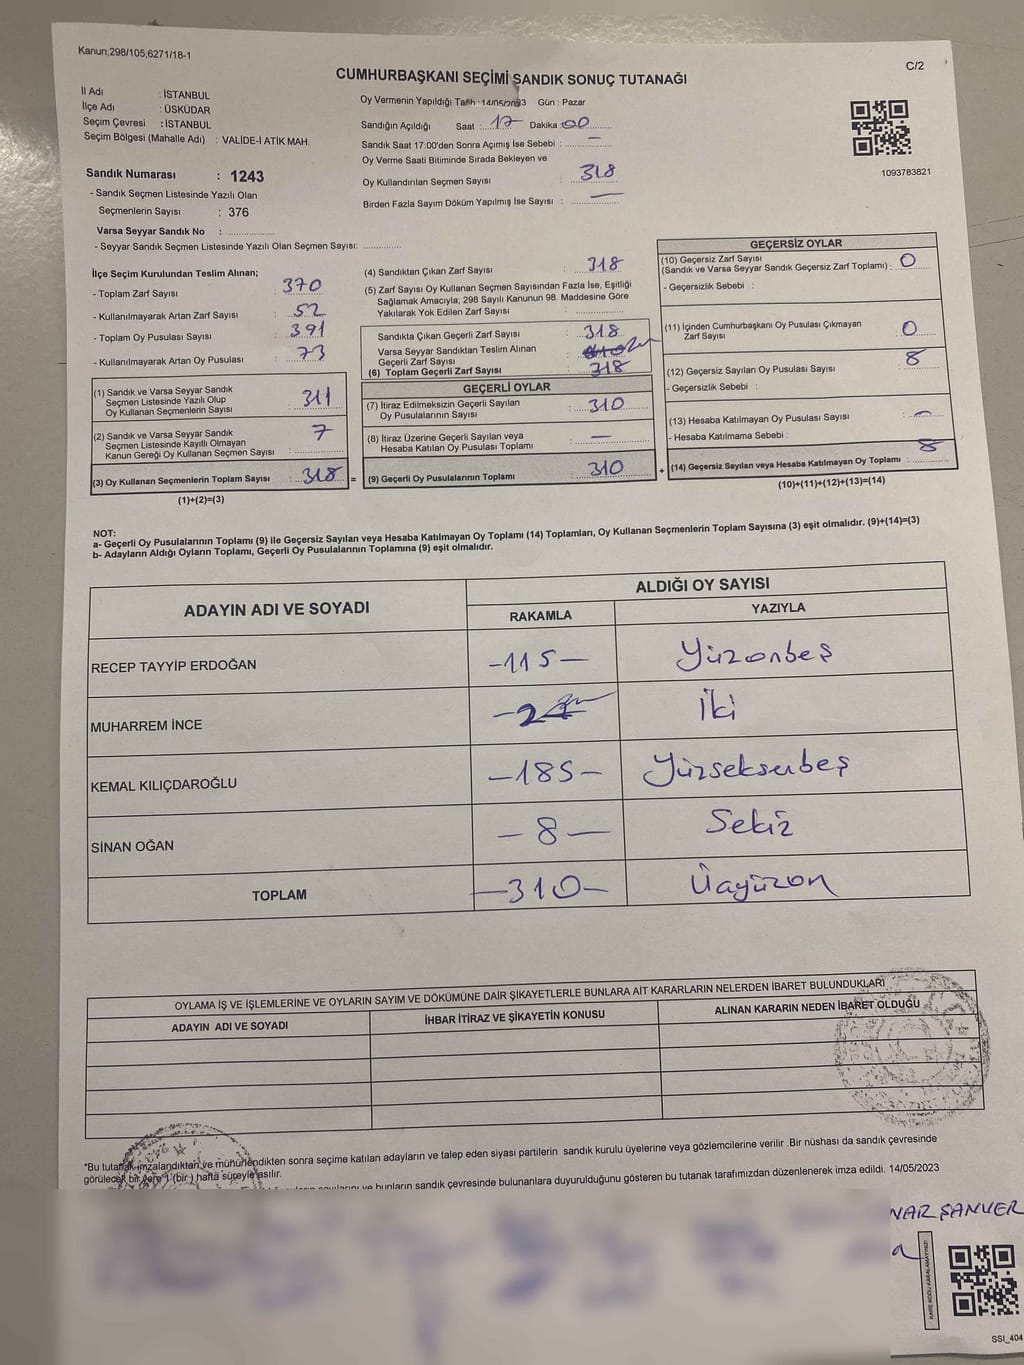 Kanun;298/105,6271/18-1
C/2
CUMHURBAŞKANI SEÇİMİ SANDIK SONUÇ TUTANAĞI
İl Adı : İSTANBUL
İlçe Adı : ÜSKÜDAR
Seçim Çevresi : İSTANBUL
Seçim Bölgesi (Mahalle Adı) : VALİDE-İ ATİK MAH.
Sandık Numarası : 1243
- Sandık Seçmen Listesinde Yazılı Olan
Seçmenlerin Sayısı : 376
Varsa Seyyar Sandık No :
- Seyyar Sandık Seçmen Listesinde Yazılı Olan Seçmen Sayısı:
Oy Vermenin Yapıldığı Tarih : 14/05/2023 Gün : Pazar
Sandığın Açıldığı Saat : 17 Dakika : 00
Sandık Saat 17:00'den Sonra Açımış İse Sebebi : —
Oy Verme Saati Bitiminde Sırada Bekleyen ve
Oy Kullandırılan Seçmen Sayısı : 318
Birden Fazla Sayım Döküm Yapılmış İse Sayısı : —
1093783821
İlçe Seçim Kurulundan Teslim Alınan;
- Toplam Zarf Sayısı : 370
- Kullanılmayarak Artan Zarf Sayısı : 52
- Toplam Oy Pusulası Sayısı : 391
- Kullanılmayarak Artan Oy Pusulası : 73
(1) Sandık ve Varsa Seyyar Sandık
Seçmen Listesinde Yazılı Olup
Oy Kullanan Seçmenlerin Sayısı : 311
(2) Sandık ve Varsa Seyyar Sandık
Seçmen Listesinde Kayıtlı Olmayan
Kanun Gereği Oy Kullanan Seçmen Sayısı : 7
(3) Oy Kullanan Seçmenlerin Toplam Sayısı : 318 =
(1)+(2)=(3)
(4) Sandıktan Çıkan Zarf Sayısı : 318
(5) Zarf Sayısı Oy Kullanan Seçmen Sayısından Fazla İse, Eşitliği
Sağlamak Amacıyla; 298 Sayılı Kanunun 98. Maddesine Göre
Yakılarak Yok Edilen Zarf Sayısı :
Sandıkta Çıkan Geçerli Zarf Sayısı : 318
Varsa Seyyar Sandıktan Teslim Alınan
Geçerli Zarf Sayısı :
(6) Toplam Geçerli Zarf Sayısı : 318
GEÇERLİ OYLAR
(7) İtiraz Edilmeksizin Geçerli Sayılan
Oy Pusulalarının Sayısı : 310
(8) İtiraz Üzerine Geçerli Sayılan veya
Hesaba Katılan Oy Pusulası Toplamı : —
(9) Geçerli Oy Pusulalarının Toplamı : 310 +
GEÇERSİZ OYLAR
(10) Geçersiz Zarf Sayısı
(Sandık ve Varsa Seyyar Sandık Geçersiz Zarf Toplamı) : 0
- Geçersizlik Sebebi :
(11) İçinden Cumhurbaşkanı Oy Pusulası Çıkmayan
Zarf Sayısı 0
(12) Geçersiz Sayılan Oy Pusulası Sayısı 8
- Geçersizlik Sebebi :
(13) Hesaba Katılmayan Oy Pusulası Sayısı : —
- Hesaba Katılmama Sebebi :
(14) Geçersiz Sayılan veya Hesaba Katılmayan Oy Toplamı : 8
(10)+(11)+(12)+(13)=(14)
NOT:
a- Geçerli Oy Pusulalarının Toplamı (9) ile Geçersiz Sayılan veya Hesaba Katılmayan Oy Toplamı (14) Toplamları, Oy Kullanan Seçmenlerin Toplam Sayısına (3) eşit olmalıdır. (9)+(14)=(3)
b- Adayların Aldığı Oyların Toplamı, Geçerli Oy Pusulalarının Toplamına (9) eşit olmalıdır.
ADAYIN ADI VE SOYADI
ALDIĞI OY SAYISI
RAKAMLA YAZIYLA
RECEP TAYYİP ERDOĞAN -115- Yüzonbeş
MUHARREM İNCE -2 İki
KEMAL KILIÇDAROĞLU -185- Yüzseksenbeş
SİNAN OĞAN -8- Sekiz
TOPLAM -310- Üçyüzon
OYLAMA İŞ VE İŞLEMLERİNE VE OYLARIN SAYIM VE DÖKÜMÜNE DAİR ŞİKAYETLERLE BUNLARA AİT KARARLARIN NELERDEN İBARET BULUNDUKLARI
ADAYIN ADI VE SOYADI İHBAR İTİRAZ VE ŞİKAYETİN KONUSU ALINAN KARARIN NEDEN İBARET OLDUĞU
*Bu tutanak imzalandıktan ve mühürlendikten sonra seçime katılan adayların ve talep eden siyasi partilerin sandık kurulu üyelerine veya gözlemcilerine verilir .Bir nüshası da sandık çevresinde
görülecek bir yere 1 (bir ) hafta süreyle asılır.
ve bunların sandık çevresinde bulunanlara duyurulduğunu gösteren bu tutanak tarafımızdan düzenlenerek imza edildi. 14/05/2023
ŞANVER
KARE KODU KARALAMAYINIZ!
SSI_404